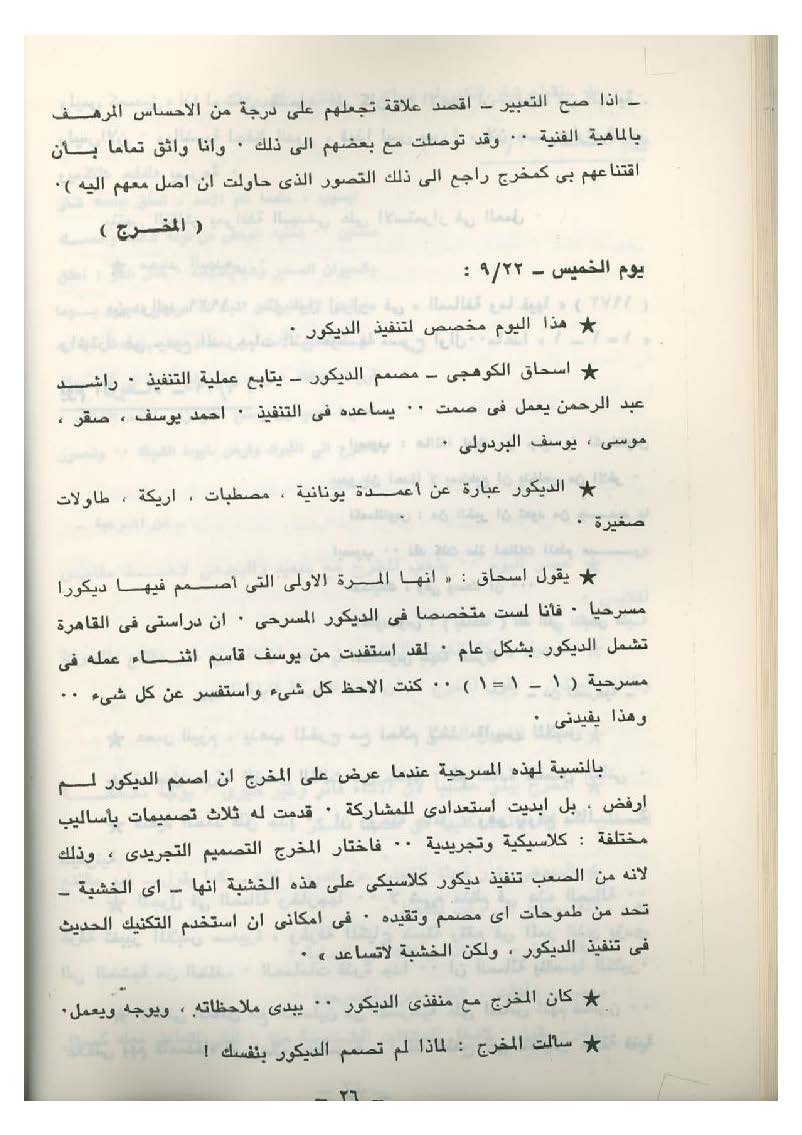 ــ اذا صح التعبير ــ اقصد علاقة تجعلهم على درجة من الاحساس المرهــف
بالماهية الفنية ٠٠ وقد توصلت مع بعضهم الى ذلك ٠ وانا واثق تماما بــأن
اقتناعهم بى كمخرج راجع الى ذلك التصور الذى حاولت ان اصل معهم اليه )٠
( المخــرج )
يوم الخميس ــ ٩/٢٢ :
★ هذا اليوم مخصص لتنفيذ الديكور ٠
★ اسحاق الكوهجى ــ مصمم الديكور ــ يتابع عملية التنفيذ ٠ راشــد
عبد الرحمن يعمل فى صمت ٠٠ يساعده فى التنفيذ ٠ احمد يوسف ، صقر ،
موسى ، يوسف البردولى ٠
★ الديكور عبارة عن اعمــدة يونانية ، مصطبات ، اريكة ، طاولات
صغيرة ٠
★ يقول اسحاق : « انهـا المــرة الاولى التى أصـمم فيهــا ديكورا
مسرحيا ٠ فأنا لست متخصصا فى الديكور المسرحى ٠ ان دراستى فى القاهرة
تشمل الديكور بشكل عام ٠ لقد استفدت من يوسف قاسم اثنــاء عمله فى
مسرحية ( ١ ــ ١ = ١ ) ٠٠ كنت الاحظ كل شىء واستفسر عن كل شىء ٠٠
وهذا يفيدنى ٠
بالنسبة لهذه المسرحية عندما عرض على المخرج ان اصمم الديكور لــم
ارفض ، بل ابديت استعدادى للمشاركة ٠ قدمت له ثلاث تصميمات بأساليب
مختلفة : كلاسيكية وتجريدية ٠٠ فاختار المخرج التصميم التجريدى ، وذلك
لانه من الصعب تنفيذ ديكور كلاسيكى على هذه الخشبة انها ــ اى الخشبة ــ
تحد من طموحات اى مصمم وتقيده ٠ فى امكانى ان استخدم التكنيك الحديث
فى تنفيذ الديكور ، ولكن الخشبة لاتساعد » ٠
★ كان المخرج مع منفذى الديكور ٠٠ يبدى ملاحظاته ، ويوجه ويعمل٠
★ سألت المخرج : لماذا لم تصمم الديكور بنفسك !
ــ ٢٦ ــ